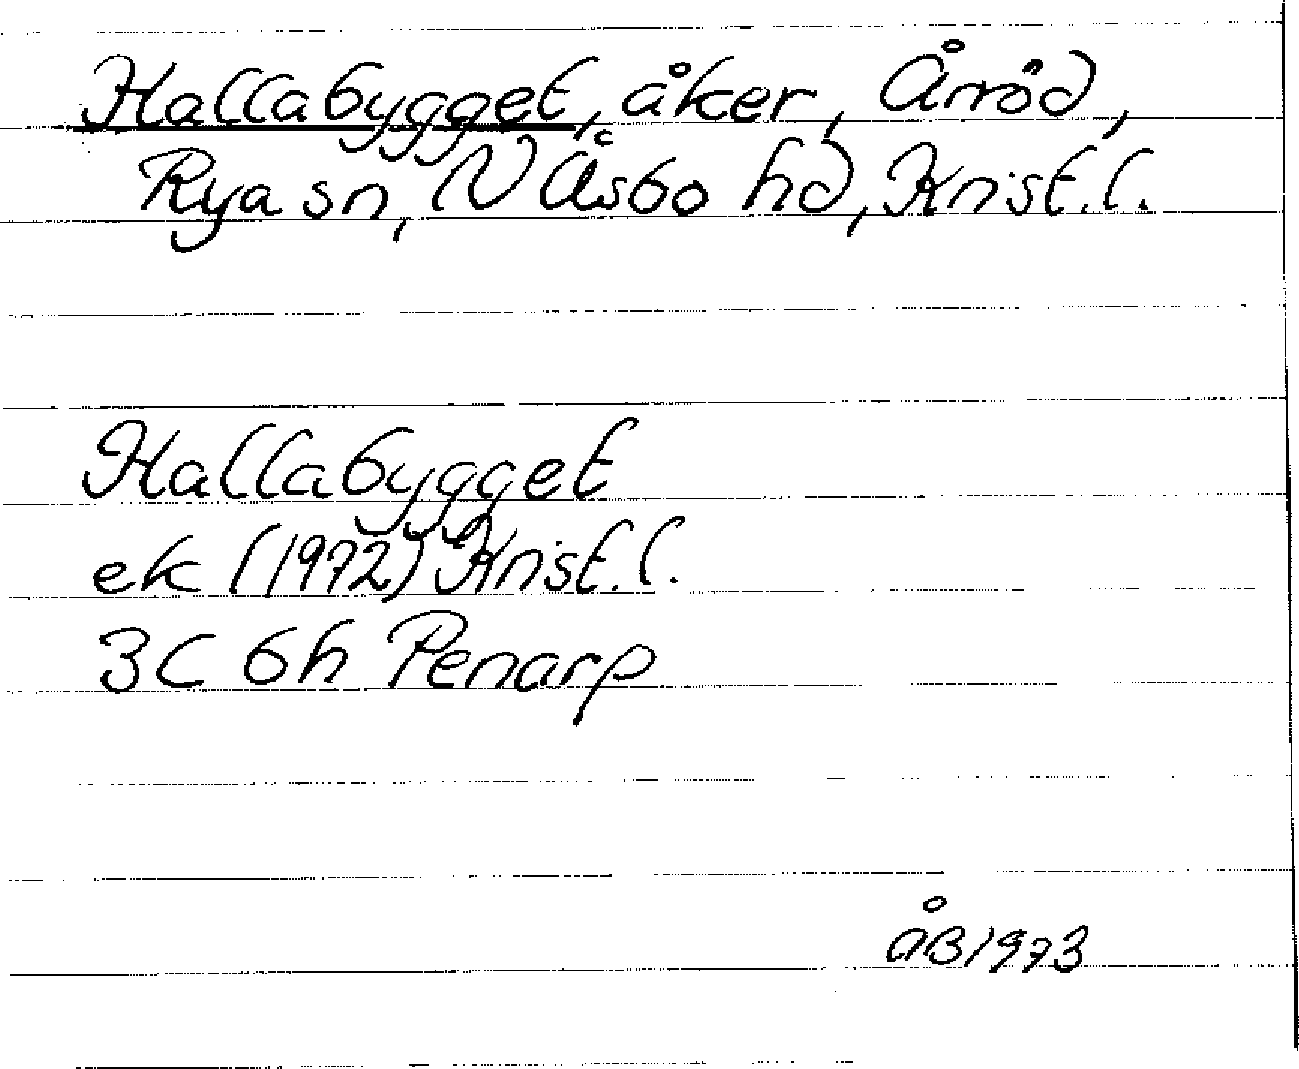 Hallabygget, åker, Årröd,
Rya sn, N Åsbo hd, Krist.l.
Hallabygget
ek (1972) Krist.l.
3C 6h Penarp
ÅB 1973